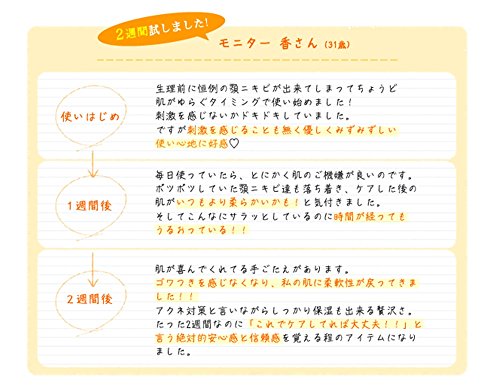 2週間試しました!
モニター 香さん (31歳)
使いはじめ
生理前に恒例の顎ニキビが出来てしまってちょうど
肌がゆらぐタイミングで使い始めました!
刺激を感じないかドキドキしていました。
ですが刺激を感じることも無く優しくみずみずしい
使い心地に好感♡
1週間後
毎日使っていたら、とにかく肌のご機嫌が良いのです。
ポツポツしていた顎ニキビ達も落ち着き、ケアした後の
肌がいつもより柔らかいかも!と気付きました。
そしてこんなにサラッとしているのに時間が経っても
うるおっている!!
2週間後
肌が喜んでくれてる手ごたえがあります。
ゴワつきを感じなくなり、私の肌に柔軟性が戻ってきま
した!!
アクネ対策と言いながらしっかり保湿も出来る贅沢さ。
たった2週間なのに「これでケアしてれば大丈夫!!」と
言う絶対的安心感と信頼感を覚える程のアイテムになり
ました。